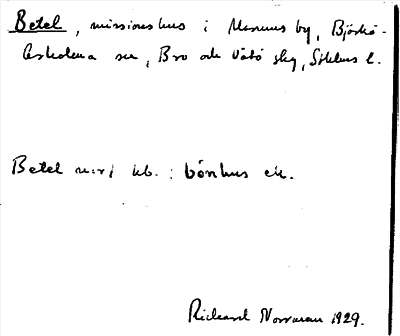 Betel, missionshus i Marums by, Björkö-
Arholma sn, Bro och Vätö skg, Sthlms l.
Betel : bönhus
Rickard Norrman 1929.